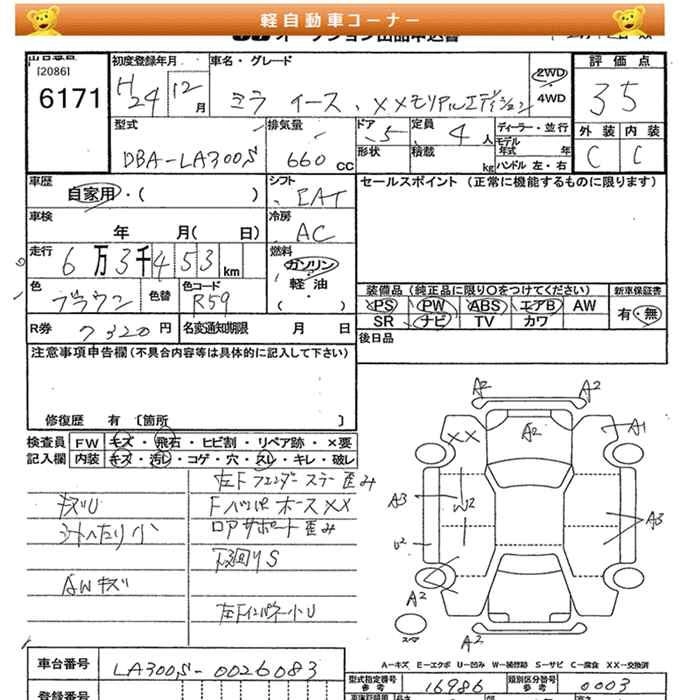 軽自動車コーナー
[2086]
6171
初度登録年月
H24 12月
車名・グレード
ミラ イース、XXメモリアルエディション
2WD
4WD
評価点
35
外装 内装
C C
型式
DBA-LA300S
排気量
660 CC
ドア 5
定員 4人
形状
積載 kg
ディーラー・並行
モデル年式 年
ハンドル 左・右
車歴
自家用・( )
シフト
CAT
セールスポイント (正常に機能するものに限ります)
車検
年 月( 日)
冷房
AC
走行
6万3千453km
燃料
ガソリン
軽油
・
( )
色
ブラウン
色替
色コード
R59
装備品 (純正品に限り○をつけてください)
PS PW ABS エアB AW
SR ナビ TV カワ
新車保証書
有・無
R券 7320円
名変通知期限 月 日
後日品
注意事項申告欄(不具合内容等は具体的に記入して下さい)
修復歴 有 [箇所 ]
検査員 FW キズ・飛石・ヒビ割・リペア跡・×要
記入欄 内装 キズ・汚レ・コゲ・穴・スレ・キレ・破レ
左Fフェンダーステー歪み
キズU
FバンパホースXX
ロアサポート歪み
下回りS
AWキズ
左Fインパネ小U
A2 A2
XX A2 A1
A3 W2 A3
U2
A2
スペア
A2
A-キズ E-エクボ U-凹み W-補修跡 S-サビ C-腐食 XX-交換済
車台番号 LA300S-0026083
型式指定番号 参考 16986
類別区分番号 参考 0003
登録番号